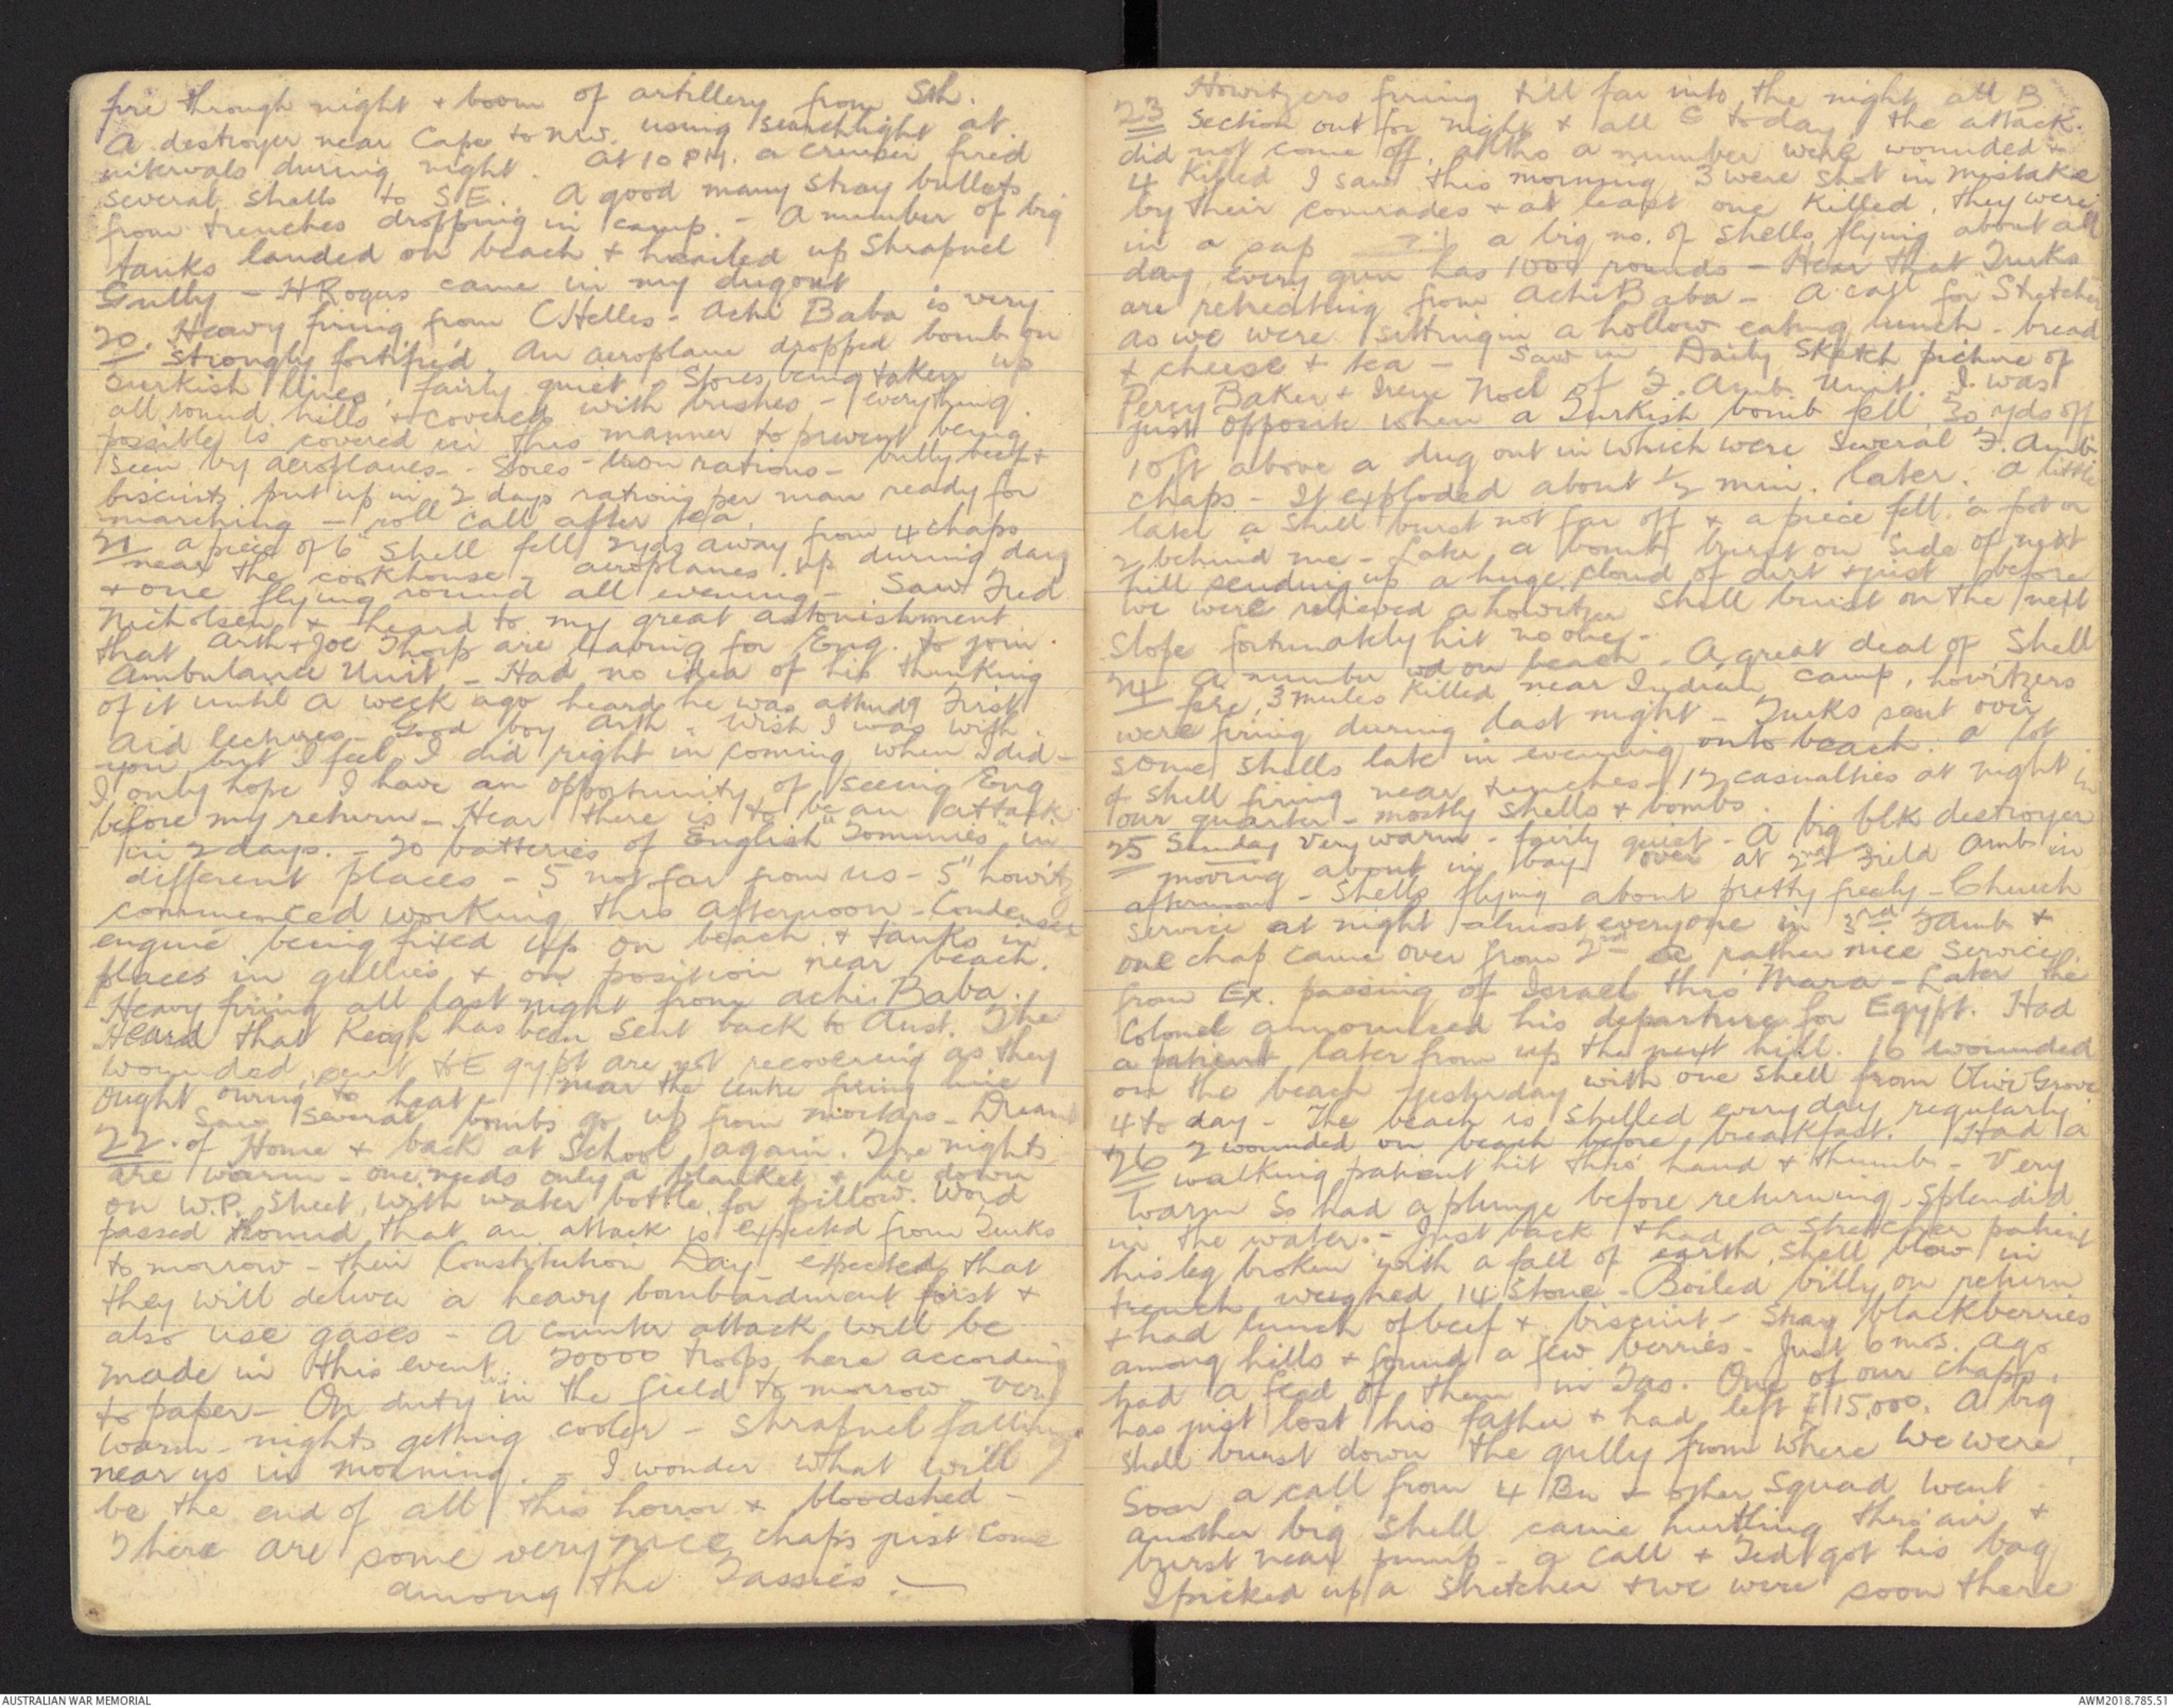 fire through night + boom of artillery from Sth.
A destroyer near Cape to NW. using searchlight at
intervals during night. At 10 PM. a cruiser fired
several shells to S.E. A good many stray bullets
from trenches dropping in camp. - A number of big
tanks landed on beach + hauled up Shrapnel
Gully - H Rogers came in my dugout
20. Heavy firing from C Helles - Achi Baba is very
strongly fortified. An aeroplane dropped bomb on
Turkish lines, fairly quiet. Stores being taken up
all round hills + covered with bushes - everything
possible is covered in this manner to prevent being
seen by aeroplanes - Stores - Iron rations - bully beef +
biscuits put up in 2 days rations per man ready for
marching - roll call after tea.
21 a piece of 6" shell fell 2 yds away from 4 chaps
near the cookhouse - aeroplanes up during day
+ one flying round all evening - Saw Fred
Nicholsen + heard to my great astonishment
that Arth + Joe Thorp are leaving for Eng. to join
Ambulance Unit - Had no idea of his thinking
of it until a week ago heard he was attendg First
Aid lectures - Good boy Arth. Wish I was with
you but I feel I did right in coming when I did -
I only hope I have an opportunity of seeing Eng
before my return - Hear there is to be an attack
in 2 days. - 20 batteries of English "Tommies" in
different places - 5 not far from us - 5" howitz
commenced working this afternoon - Condenser
engine being fixed up on beach + tanks in
places in gullies + on position near beach.
Heavy firing all last night from Achi Baba.
Heard that Keogh has been sent back to Aust. The
wounded sent to Egypt are not recovering as they
ought owing to heat - near the centre firing line
Saw several bombs go up from mortars - Dreamt
22. of Home + back at School again. The nights
are warm - one needs only a blanket + lie down
on W.P. sheet, with water bottle for pillow. Word
passed round that an attack is expected from Turks
to morrow - their Constitution Day - expected that
they will deliver a heavy bombardment first +
also use gases - A counter attack will be
made in this event. 20000 troops here according
to paper - On duty in the field to morrow Very
warm - nights getting cooler - Shrapnel falling
near us in morning. - I wonder what will
be the end of all this horror + bloodshed -
There are some very nice chaps just come
among the Tassies. -
Howitzers firing till far into the night all B
23 Section out for night + all C today, the attack
did not come off, altho a number were wounded +
4 killed I saw this morning, 3 were shot in mistake
by their comrades + at least one killed, they were
in a sap a big no. of shells flying about all
day, every gun has 1000 rounds - Hear that Turks
are retreating from Achi Baba - A call for Stretcher
as we were sitting in a hollow eating lunch - bread
+ cheese + tea - Saw in Daily Sketch picture of
Percy Baker + Irene Noel of F. Amb. Unit. I was
just opposite when a Turkish bomb fell 30 yds off
10 ft above a dug out in which were several F. Amb
chaps - It exploded about ½ min. later. A little
later a shell burst not far off + a piece fell a foot or
2 behind me - Later a bomb burst on side of next
hill sending up a huge cloud of dirt + just before
we were relieved a howitzer shell burst on the next
slope fortunately hit no one -
24 A number wd on beach - A great deal of shell
fire, 3 mules killed near Indian camp, howitzers
were firing during last night - Turks sent over
some shells late in evening onto beach. a lot
of shell firing near trenches - 12 casualties at night in
our quarter - mostly shells + bombs.
25 Sunday Very warm - fairly quiet - A big blk destroyer
moving about in bay. Over at 2nd Field Amb in
afternoon - Shells flying about pretty freely - Church
service at night almost everyone in 3rd F Amb +
one chap came over from 2nd rather nice service
from Ex. passing of Israel thro' Mara - Later the
Colonel announced his departure for Egypt. Had
a patient later from up the next hill. 16 wounded
on the beach yesterday with one shell from Olive Grove
4 to day - The beach is shelled every day regularly
26 2 wounded on beach before breakfast. Had a
walking patient hit thro' hand + thumb - Very
warm so had a plunge before returning, splendid
in the water. - Just back + had a stretcher patient
his leg broken with a fall of earth, shell blow in
trench, weighed 14 stone - Boiled billy on return
+ had lunch of beef + biscuit - Stray blackberries
among hills + found a few berries - Just 6 mos. ago
had a feed of them in Tas. One of our chaps
has just lost his father + had left £15,000. A big
shell burst down the gully from where we were,
Soon a call from 4 Bn + other squad went
another big shell came hurtling thro' air +
burst near pump - a call + Ted got his bag
I picked up a stretcher + we were soon there
AUSTRALIAN WAR MEMORIAL
AWM2018.785.51